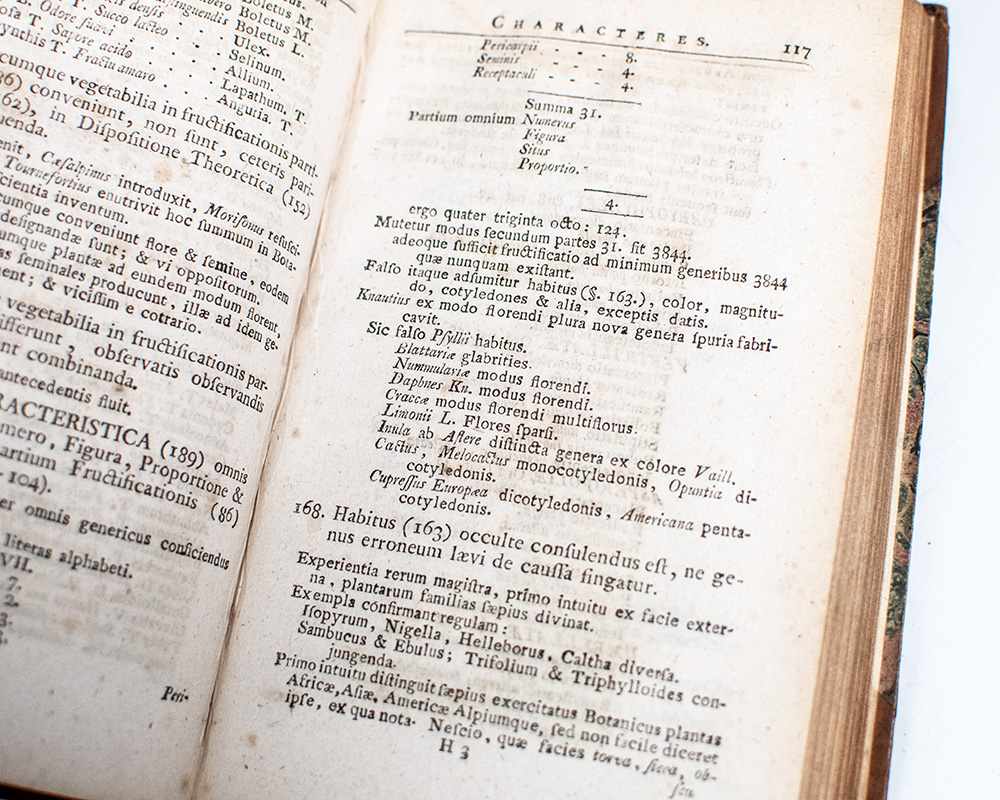 Boletus M.
bero Boletus M.
is densis . . tinguendis Boletus L.
T. Succo lacteo . . Ulex.
Odore suavi . . . Selinum.
osa T. Sapore acido . . . Allium.
ynthis T. Fractu amaro . . . Lapathum. T.
Anguria. T.
cumque vegetabilia in fructificationis parti-
86) conveniunt, non sunt, ceteris pari-
162), in Dispositione Theoretica (152)
uenda.
enit, Cæsalpinus introduxit, Morisonus resusci-
Tournefortius enutrivit hoc summum in Bota-
cientia inventum.
cumque conveniunt flore & semine, eodem
designandæ sunt; & vi oppositorum.
umque plantæ ad eundem modum florent,
as seminales producunt, illæ ad idem ge-
nent; & vicissim e cotrario.
vegetabilia in fructificationis par-
ifferunt, observatis observandis
nt combinanda.
antecedentis fluit.
RACTERISTICA (189) omnis
mero, Figura, Proportione &
artium Fructificationis (86)
104).
er omnis genericus conficiendus
literas alphabeti.
VII.
7.
2.
3.
Peri-
CHARACTERES. 117
Pericarpii - - - 8.
Seminis - - - 4.
Receptaculi - - - 4.
Summa 31.
Partium omnium Numerus
Figura
Situs
Proportio.
4.
ergo quater triginta octo: 124.
Mutetur modus secundum partes 31. fit 3844.
adeoque sufficit fructificatio ad minimum generibus 3844
quæ nunquam existant.
Falso itaque adsumitur habitus (§. 163.), color, magnitu-
do, cotyledones & alia, exceptis datis.
Knautius ex modo florendi plura nova genera spuria fabri-
cavit.
Sic falso Psyllii habitus.
Blattariæ glabrities.
Nummulariæ modus florendi.
Daphnes Kn. modus florendi.
Craccæ modus florendi multiflorus.
Limonii L. Flores sparsi.
Inula ab Astere distincta genera ex colore Vaill.
Cactus, Melocactus monocotyledonis, Opuntia di-
cotyledonis.
Cupressus Europæa dicotyledonis, Americana penta-
cotyledonis.
168. Habitus (163) occulte consulendus est, ne ge-
nus erroneum lævi de caussa fingatur.
Experientia rerum magistra, primo intuitu ex facie exter-
na, plantarum familias sæpius divinat.
Exempla confirmant regulam:
Isopyrum, Nigella, Helleborus, Caltha diversa.
Sambucus & Ebulus; Trifolium & Triphylloides con-
jungenda.
Primo intuitu distinguit sæpius exercitatus Botanicus plantas
Africæ, Asiæ, Americæ Alpiumque, sed non facile diceret
ipse, ex qua nota. Nescio, quæ facies torva, sicca, ob-
H 3
scu